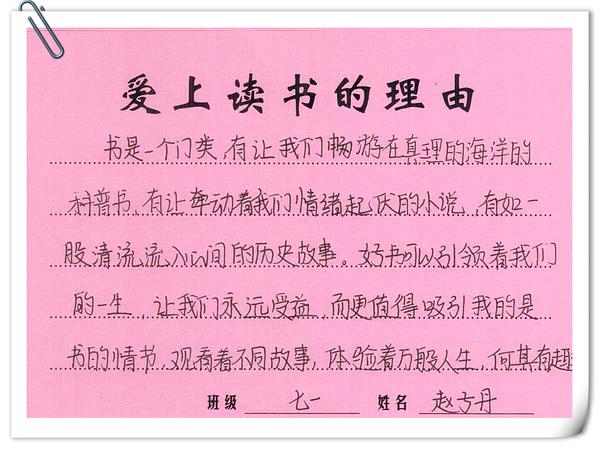 爱上读书的理由
书是一个门类,有让我们畅游在真理的海洋的
科普书,有让牵动着我们情绪起厌的小说,有如一
股清流流入心间的历史故事。好书可以引领着我们
的一生,让我们永远受益,而更值得吸引我的是
书的情节,观看着不同故事,体验着万般人生,何其有趣
班级 七一 姓名 赵方丹